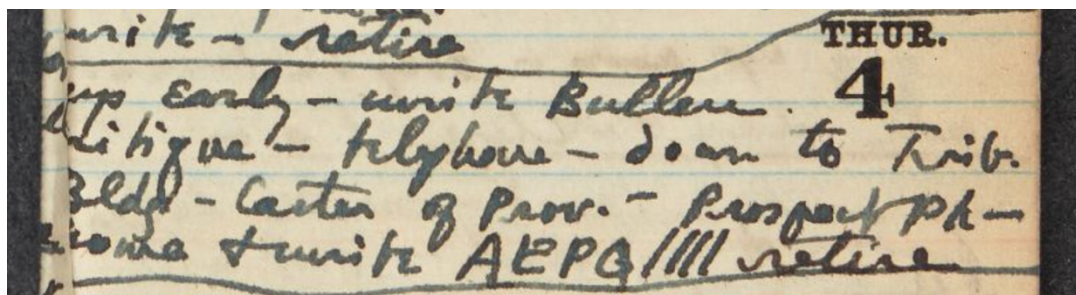 write — retire
THUR.
4
up early — write Bullen
critique — telephone — down to Trib.
Bldg — Caster of Prov. — Prospect Ph —
home & write AEPQ //// retire